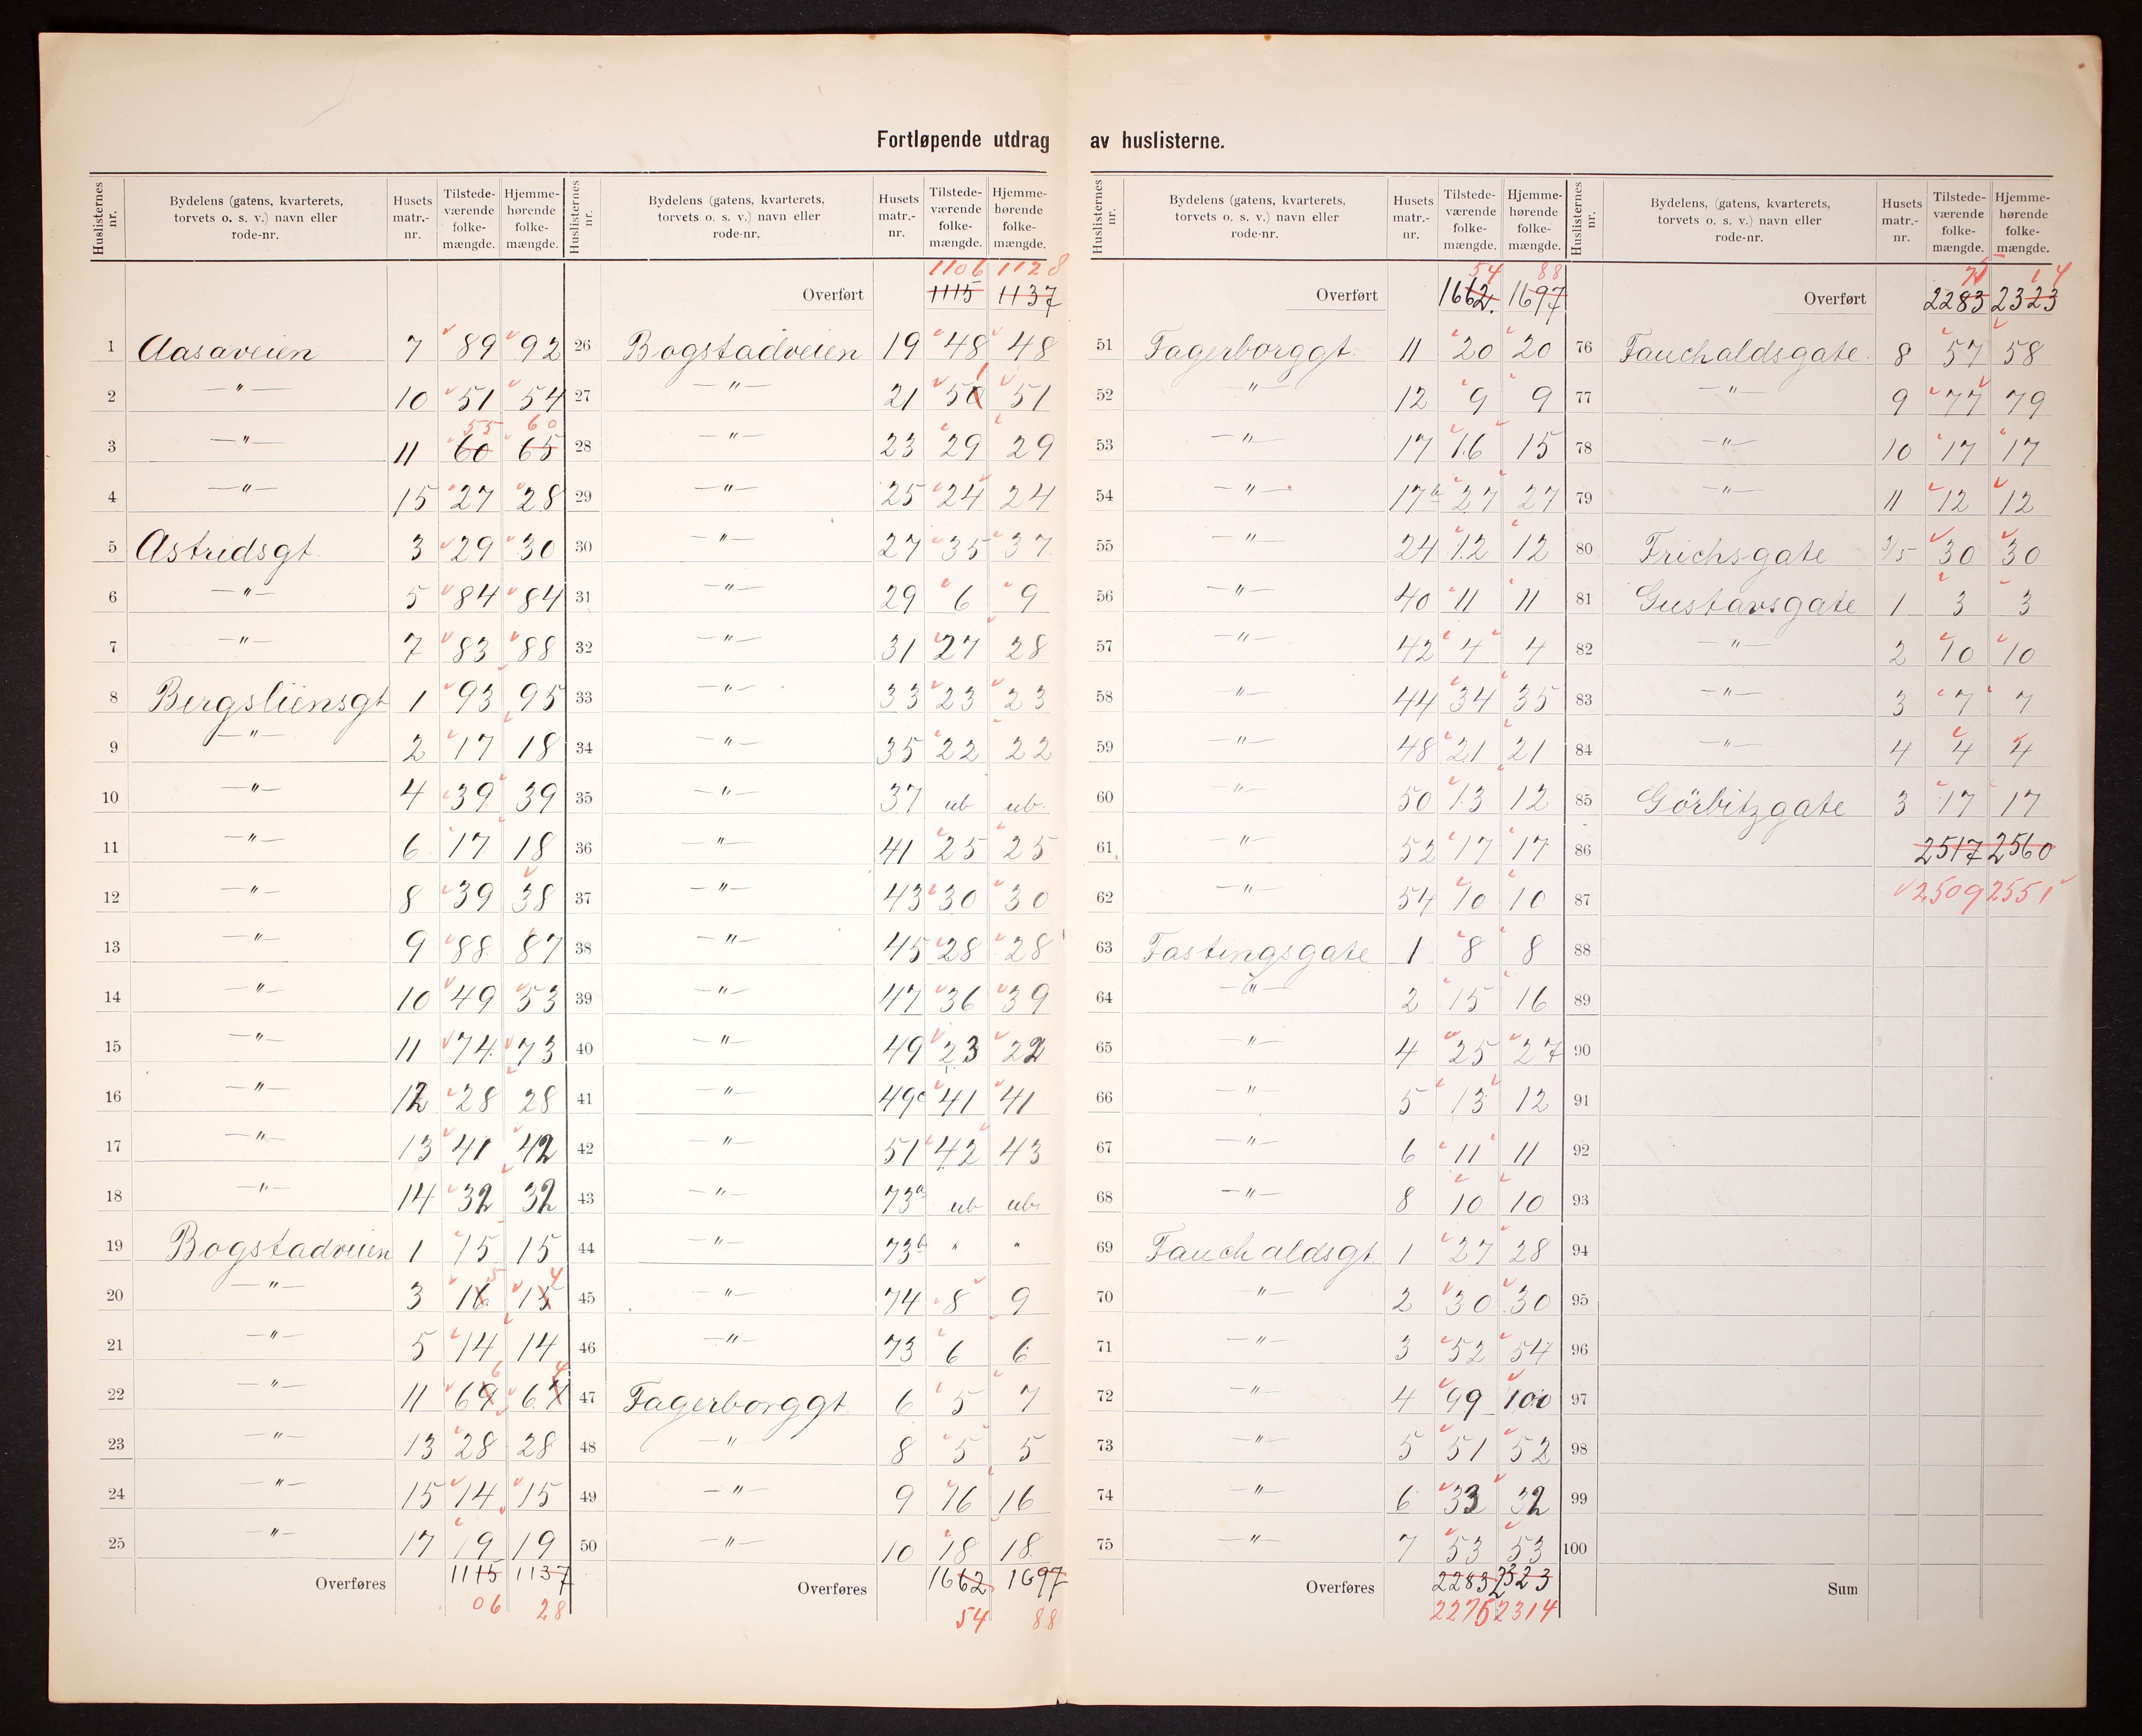 Fortløpende utdrag av huslisterne.
Huslisternes nr. | Bydelens (gatens, kvarterets, torvets o. s. v.) navn eller rode-nr. | Husets matr.-nr. | Tilstedeværende folkemængde. | Hjemmehørende folkemængde.
1 Aasaveien 7 89 92
2 —"— 10 51 54
3 —"— 11 60 65 55 60
4 —"— 15 27 28
5 Astridsgt. 3 29 30
6 —"— 5 84 84
7 —"— 7 83 88
8 Bergsliensgt 1 93 95
9 —"— 2 17 18
10 —"— 4 39 39
11 —"— 6 17 18
12 —"— 8 39 38
13 —"— 9 88 87
14 —"— 10 49 53
15 —"— 11 74 73
16 —"— 12 28 28
17 —"— 13 41 42
18 —"— 14 32 32
19 Bogstadveien 1 15 15
20 —"— 3 16 5 15 4
21 —"— 5 14 14
22 —"— 11 69 6 67 4
23 —"— 13 28 28
24 —"— 15 14 15
25 —"— 17 19 19
Overføres 1115 1137
06 28
Huslisternes nr. | Bydelens (gatens, kvarterets, torvets o. s. v.) navn eller rode-nr. | Husets matr.-nr. | Tilstedeværende folkemængde. | Hjemmehørende folkemængde.
1106 1128
Overført 1115 1137
26 Bogstadveien 19 48 48
27 —"— 21 50 1 51
28 —"— 23 29 29
29 —"— 25 24 24
30 —"— 27 35 37
31 —"— 29 6 9
32 —"— 31 27 28
33 —"— 33 23 23
34 —"— 35 22 22
35 —"— 37 ub ub.
36 —"— 41 25 25
37 —"— 43 30 30
38 —"— 45 28 28
39 —"— 47 36 39
40 —"— 49 23 22
41 —"— 49c 41 41
42 —"— 51 42 43
43 —"— 73a ub ub.
44 —"— 73b " "
45 —"— 74 8 9
46 —"— 73 6 6
47 Fagerborggt 6 5 7
48 —"— 8 5 5
49 —"— 9 16 16
50 —"— 10 18 18
Overføres 1662 1697
54 88
Huslisternes nr. | Bydelens (gatens, kvarterets, torvets o. s. v.) navn eller rode-nr. | Husets matr.-nr. | Tilstedeværende folkemængde. | Hjemmehørende folkemængde.
54 88
Overført 1662. 1697
51 Fagerborggt. 11 20 20
52 —"— 12 9 9
53 —"— 17 16 15
54 —"— 17b 27 27
55 —"— 24 12 12
56 —"— 40 11 11
57 —"— 42 4 4
58 —"— 44 34 35
59 —"— 48 21 21
60 —"— 50 13 12
61 —"— 52 17 17
62 —"— 54 10 10
63 Fastingsgate 1 8 8
64 —"— 2 15 16
65 —"— 4 25 27
66 —"— 5 13 12
67 —"— 6 11 11
68 —"— 8 10 10
69 Fauchaldsgt 1 27 28
70 —"— 2 30 30
71 —"— 3 52 54
72 —"— 4 99 100
73 —"— 5 51 52
74 —"— 6 33 32
75 —"— 7 53 53
Overføres 2283 2323
2275 2314
Huslisternes nr. | Bydelens (gatens, kvarterets, torvets o. s. v.) navn eller rode-nr. | Husets matr.-nr. | Tilstedeværende folkemængde. | Hjemmehørende folkemængde.
75 14
Overført 2283 2323
76 Fauchaldsgate. 8 57 58
77 —"— 9 77 79
78 —"— 10 17 17
79 —"— 11 12 12
80 Frichsgate 3/5 30 30
81 Gustavsgate 1 3 3
82 —"— 2 10 10
83 —"— 3 7 7
84 —"— 4 4 4
85 Görbitzgate 3 17 17
86 2517 2560
87 2509 2551
88
89
90
91
92
93
94
95
96
97
98
99
100
Sum